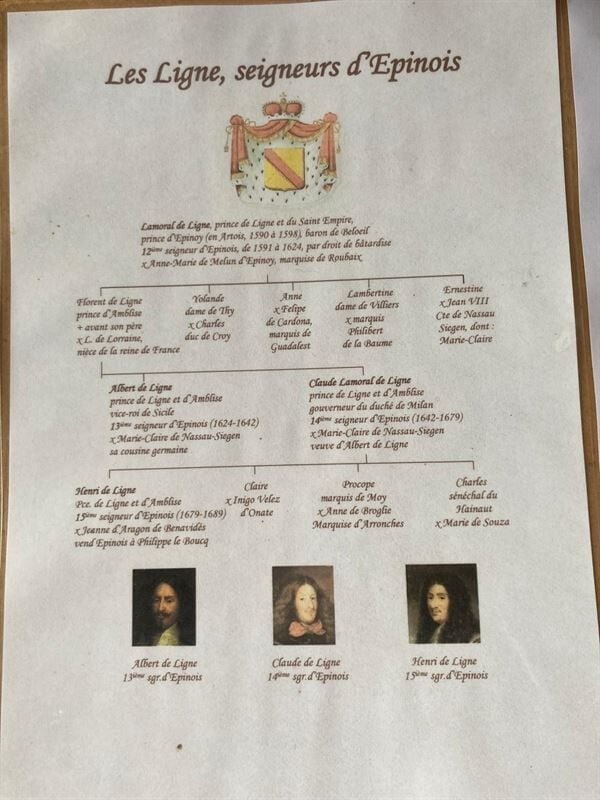 Les Ligne, seigneurs d'Epinois
Lamoral de Ligne, prince de Ligne et du Saint Empire,
prince d'Epinoy (en Artois, 1590 à 1598), baron de Beloeil
12ième seigneur d'Epinois, de 1591 à 1624, par droit de bâtardise
x Anne-Marie de Melun d'Epinoy, marquise de Roubaix
Florent de Ligne
prince d'Amblise
+ avant son père
x L. de Lorraine,
nièce de la reine de France
Yolande
dame de Thy
x Charles
duc de Croy
Anne
x Felipe
de Cardona,
marquis de
Guadalest
Lambertine
dame de Villiers
x marquis
Philibert
de la Baume
Ernestine
x Jean VIII
Cte de Nassau
Siegen, dont :
Marie-Claire
Albert de Ligne
prince de Ligne et d'Amblise
vice-roi de Sicile
13ième seigneur d'Epinois (1624-1642)
x Marie-Claire de Nassau-Siegen
sa cousine germaine
Claude Lamoral de Ligne
prince de Ligne et d'Amblise
gouverneur du duché de Milan
14ième seigneur d'Epinois (1642-1679)
x Marie-Claire de Nassau-Siegen
veuve d'Albert de Ligne
Henri de Ligne
Pce. de Ligne et d'Amblise
15ième seigneur d'Epinois (1679-1689)
x Jeanne d'Aragon de Benavidès
vend Epinois à Philippe le Boucq
Claire
x Inigo Velez
d'Onate
Procope
marquis de Moy
x Anne de Broglie
Marquise d'Arronches
Charles
sénéchal du
Hainaut
x Marie de Souza
Albert de Ligne
13ième sgr.d'Epinois
Claude de Ligne
14ième sgr.d'Epinois
Henri de Ligne
15ième sgr.d'Epinois